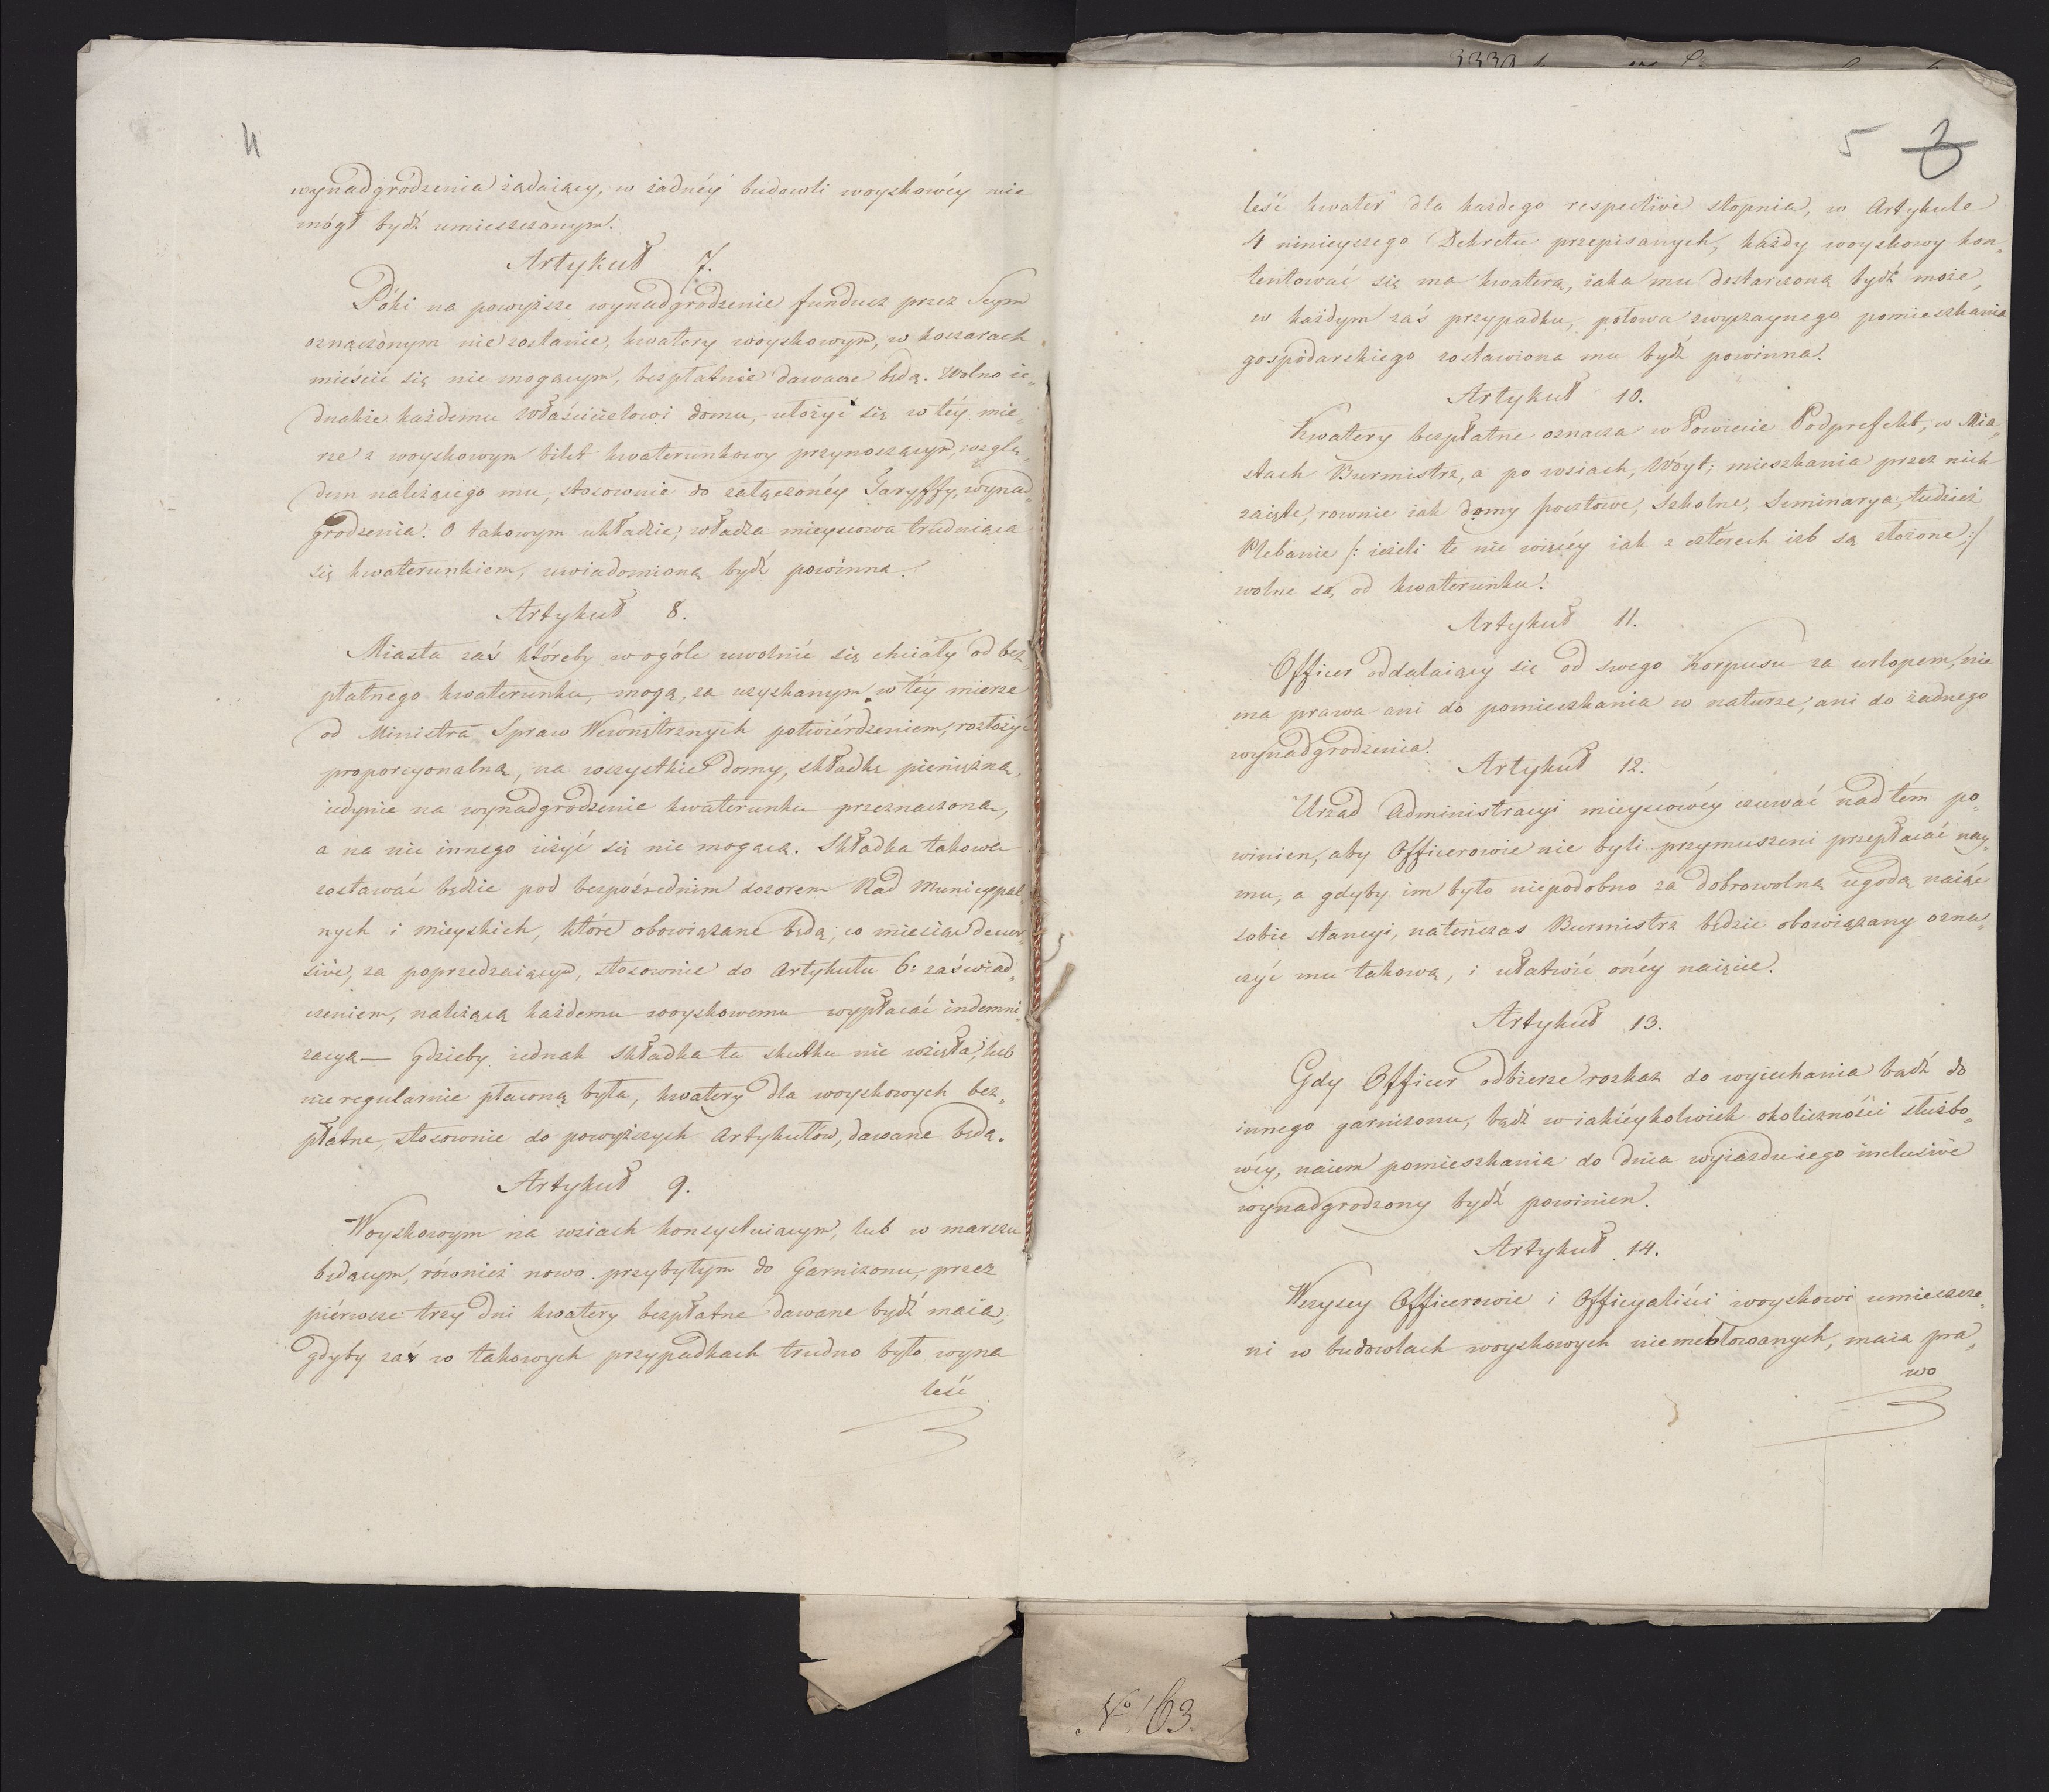 4
wynadgrodzenia żądaiący, w żadnéy budowli woyskowéy nie
mógł bydź umieszczonym.
Artykuł 7.
Póki na powyższe wynadgrodzenie fundusz przez Seym
oznaczonym nie zostanie, kwatery woyskowym, w koszarach
mieścić się nie mogącym, bezpłatnie dawane będą. Wolno ie„
dnakże każdemu Właścicielowi domu, ułożyć się w téy mie„
rze z woyskowym bilet kwaterunkowy przynoszącym, wzglę„
dem należącego mu, stosownie do załączonéy Taryffy, wynad„
grodzenia. O takowym układzie, władza mieyscowa trudniąca
się kwaterunkiem, uwiadomioną bydź powinna.
Artykuł 8.
Miasta zaś któreby w ogóle uwolnić się chciały od bez„
płatnego kwaterunku, mogą, za uzyskanym w téy mierze
od Ministra Spraw Wewnętrznych potwiérdzeniem, rozłożyć
proporcyonalną, na wszystkie domy, składkę pieniężną,
iedynie na wynadgrodzenie kwaterunku przeznaczoną,
a na nic innego użyć się nie mogącą. Składka takowa
zostawać będzie pod bezpośrednim dozorem Rad Municypal„
nych i mieyskich, które obowiązane będą, co miesiąc decur„
sive, za poprzedzaiącym, stosownie do Artykułu 6: zaświad„
czeniem, należącą każdemu woyskowemu wypłacać indemni„
zacyą — gdzieby iednak składka ta skutku nie wzięła, lub
nie regularnie płaconą była, kwatery dla woyskowych bez„
płatne, stosownie do powyższych Artykułów, dawane będą.
Artykuł 9.
Woyskowym na wsiach konsystuiącym, lub w marszu
będącym, również nowo przybyłym do Garnizonu, przez
piérwsze trzy dni kwatery bezpłatne dawane bydź maią,
gdyby zaś w takowych przypadkach trudno było wyna
leść
5 3
leść kwater dla każdego respective stopnia, w Artykule
4 ninieyszego Dekretu przepisanych, każdy woyskowy kon„
tentować się ma kwaterą, iaka mu dostarczoną bydź może,
w każdym zaś przypadku, połowa zwyczaynego pomieszkania
gospodarskiego zostawiona mu bydź powinna.
Artykuł 10.
Kwatery bezpłatne oznacza w Powiecie Podprefekt, w Mia„
stach Burmistrz, a po wsiach, Wóyt; mieszkania przez nich
zaięte, rownie iak domy pocztowe, Szkolne, Seminarya, tudzież
Plebanie /: ieżeli te nie więcéy iak z czterech izb są złożone :/
wolne są od kwaterunku.
Artykuł 11.
Officer oddalaiący się od swego Korpusu za urlopem, nie
ma prawa ani do pomieszkania w naturze, ani do żadnego
wynadgrodzenia.
Artykuł 12.
Urząd Administracyi mieyscowéy czuwać nad tém po„
winien, aby Officerowie nie byli przymuszeni przepłacać nay„
mu, a gdyby im było niepodobno za dobrowolną ugodą naiąć
sobie stancyi, natenczas Burmistrz będzie obowiązany ozna„
czyć mu takową, i ułatwić onéy naięcie.
Artykuł 13.
Gdy Officer odbierze rozkaz do wyiechania bądź do
innego garnizonu, bądź w iakiéykolwiek okoliczności służbo„
wéy, naiem pomieszkania do dnia wyiazdu iego inclusive
wynadgrodzony bydź powinien.
Artykuł 14.
Wszyscy Officerowie i Officyaliści woyskowi umieszcze„
ni w budowlach woyskowych niemeblowanych, maią pra„
wo
No 163.